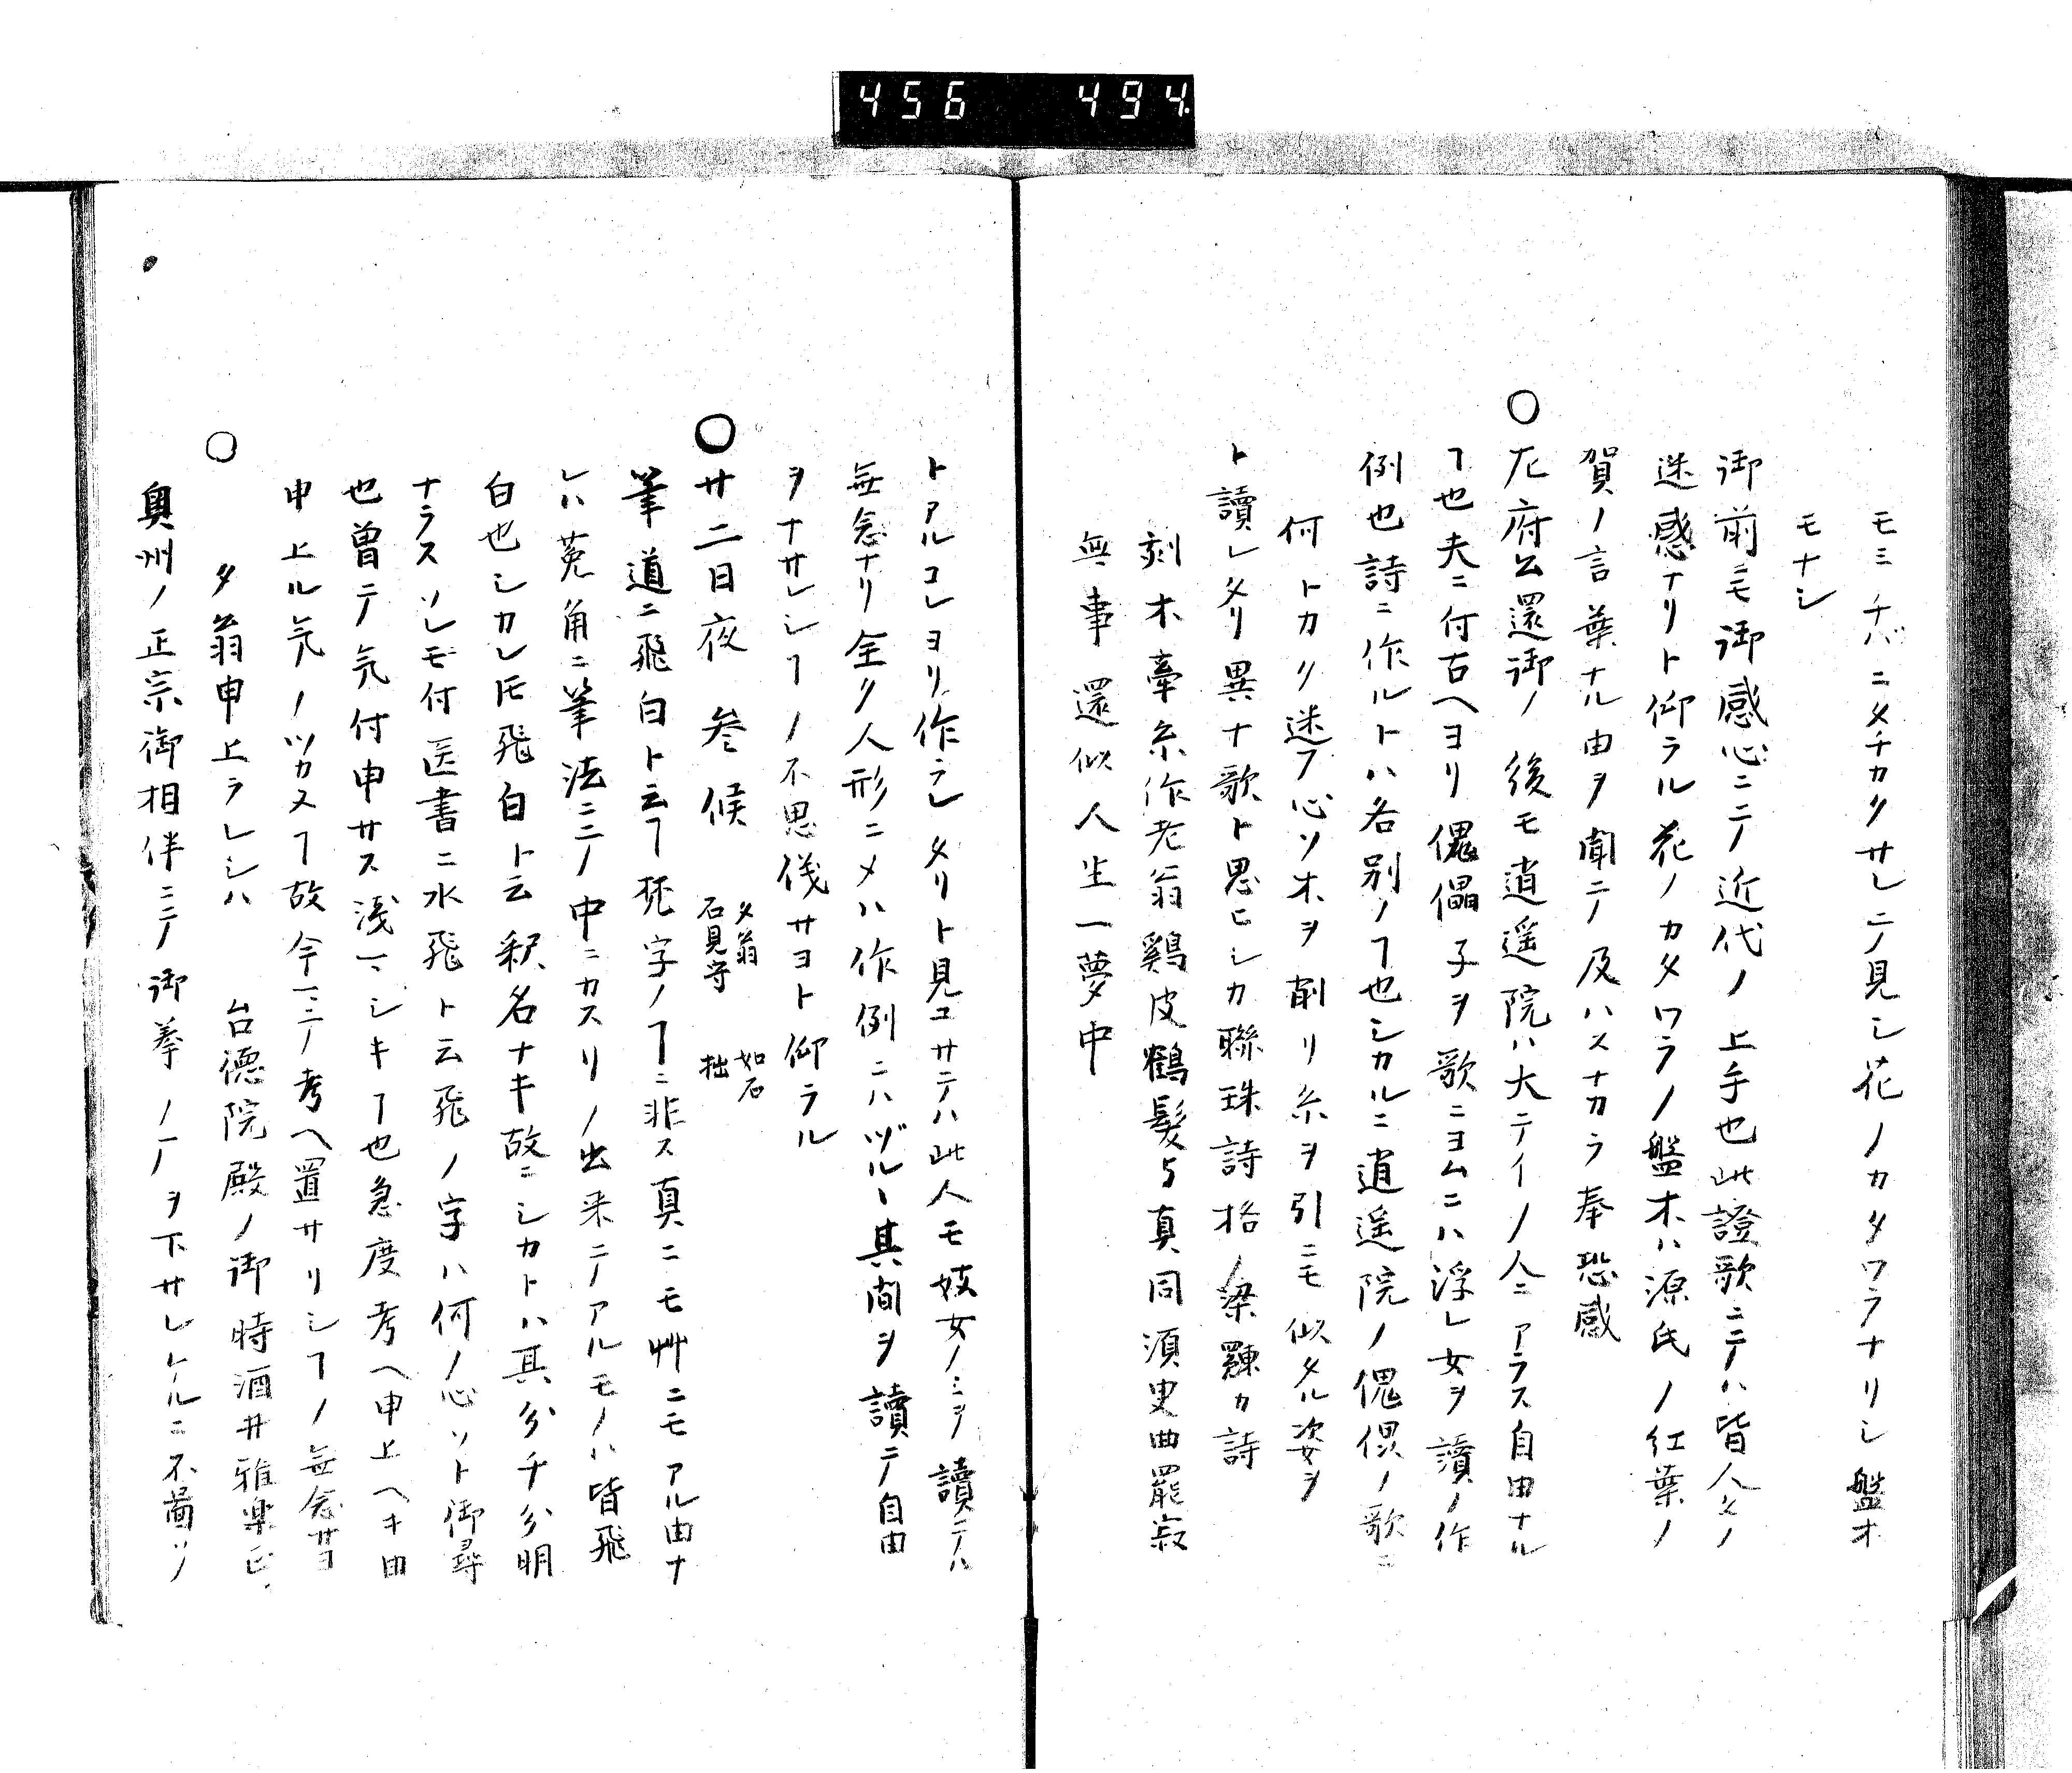 456 494
モミチバニタチカクサレニテ見シ花ノカタワラナリシ盤木
モナシ
御前ニモ御感心ニテ近代ノ上手也此證歌ニテハ皆人々ノ
迷惑ナリト仰ラル花ノカタワラノ盤木ハ源氏ノ紅葉ノ
賀ノ言葉ナル由ヲ聞テ及ハスナカラ奉恐感
〇左府公還御ノ後モ逍遥院ハ大テイノ人ニアラス自由ナル
ヿ也夫ニ付古ヘヨリ傀儡子ヲ歌ニヨムニハ浮レ女ヲ讀ノ作
例也詩ニ作ルトハ各別ノヿ也シカルニ逍遥院ノ傀儡ノ歌ニ
何トカク迷フ心ソ木ヲ削リ糸ヲ引ニモ似タル姿ヲ
ト讀レタリ異ナ歌ト思ヒシカ聯珠詩格ノ梁鍠カ詩
刻木牽糸作老翁鷄皮鶴髪与真同須臾曲罷寂
無事還似人生一夢中
トアルコレヨリ作ラレタリト見コサテハ此人モ妓女ノミヲ讀テハ
無念ナリ全ク人形ニメハ作例ニハヅル丶其間ヲ讀テ自由
ヲナサレシヿノ不思儀サヨト仰ラル
〇廿二日夜 参候 夕翁 石見守 如石 拙
筆道ニ飛白ト云ヿ梵字ノヿニ非ス真ニモ艸ニモアル由ナ
レハ菟角ニ筆法ニテ中ニカスリノ出来テアルモノハ皆飛
白也シカレ𪜈飛白ト云釈名ナキ故ニシカトハ其分チ分明
ナラスソレニ付医書ニ水飛ト云飛ノ字ハ何ノ心ソト御尋
也曽テ気付申サス浅マシキヿ也急度考ヘ申上ヘキ由
申上ル気ノツカヌヿ故今マテ考ヘ置サリシヿノ無念サヨ
〇夕翁申上ラレシハ 台徳院殿ノ御時酒井雅楽正
奥州ノ正宗御相伴ニテ御拳ノ一ヲ下サレケルニ不圖ソ